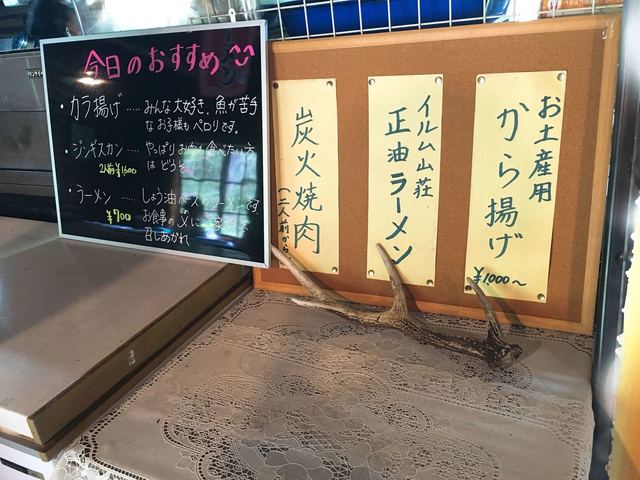 今日のおすすめ
・カラ揚げ……みんな大好き、魚が苦手
なお子様もペロリです。
・ジンギスカン……やっぱりお肉が食べたい方
2人前¥1600
はどうぞ
・ラーメン……しょう油ベースラーメンです。
¥700
お食事の
召しあがれ
炭火焼肉
(二人前から
イルム山荘
正油ラーメン
お土産用
から揚げ
¥1,000~